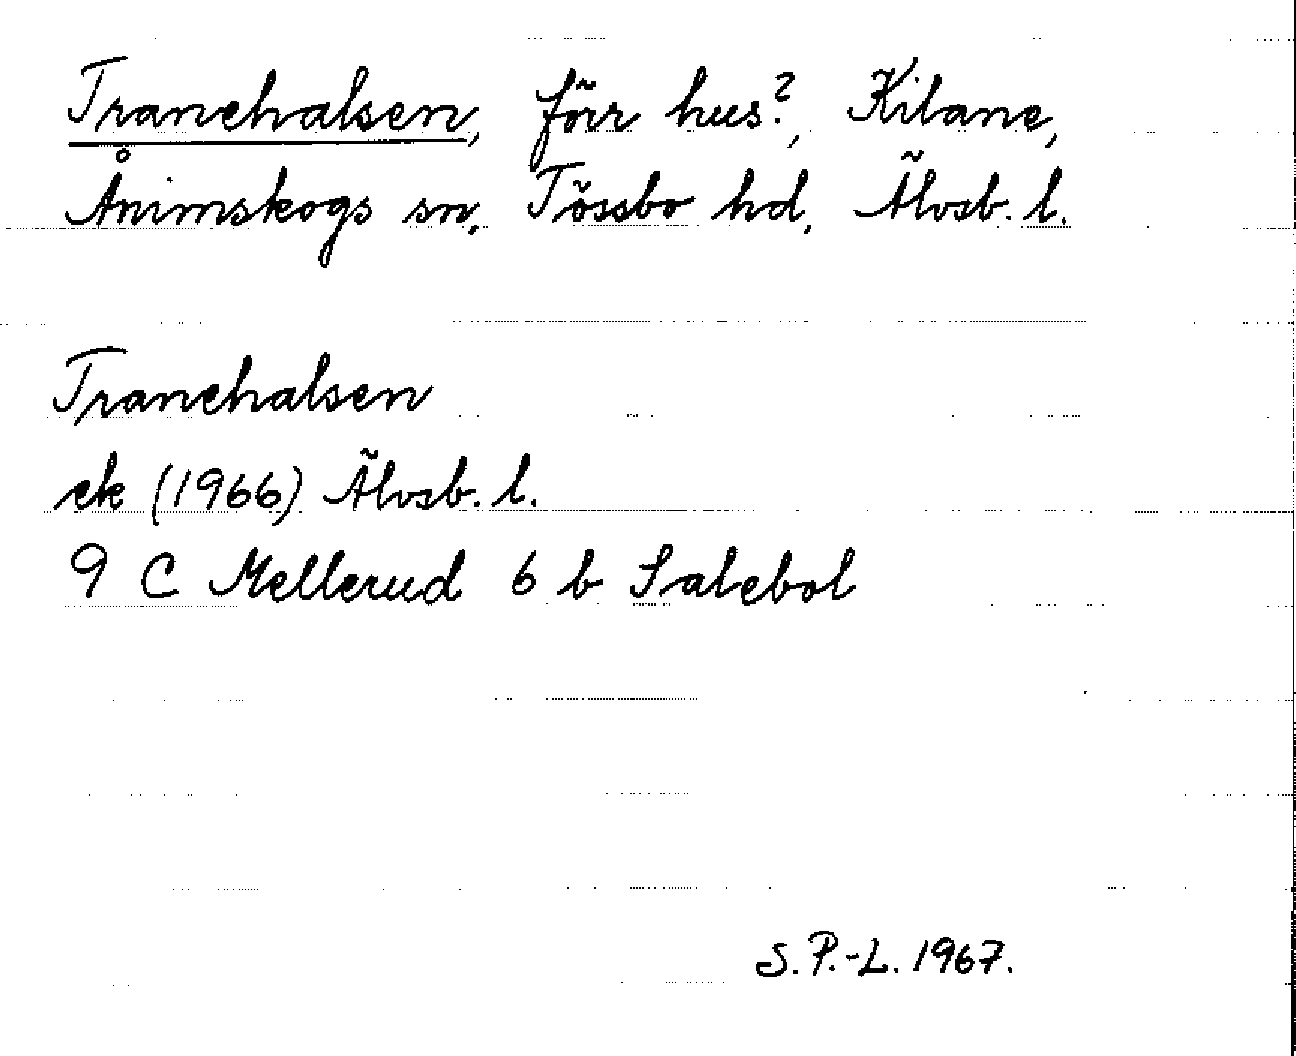 Tranehalsen, förr hus?, Kilane,
Ånimskogs sn, Tössbo hd, Älvsb. l.
Tranehalsen
ek (1966) Älvsb. l.
9 C Mellerud 6 b Salebol
S. P.-L. 1967.